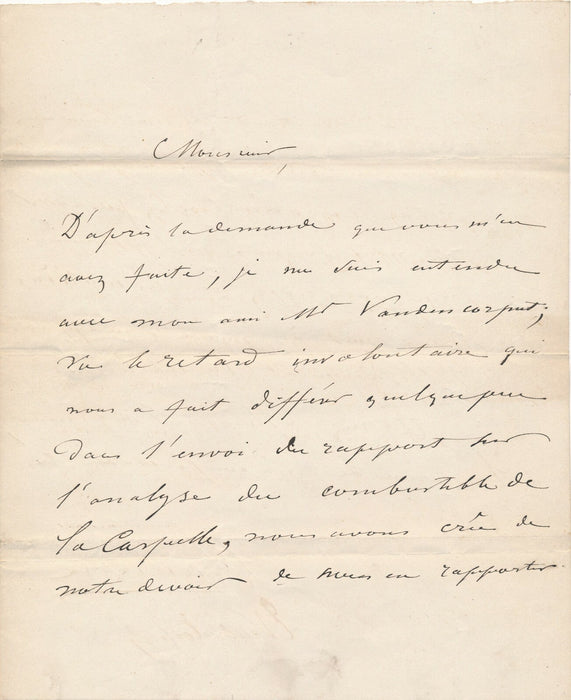 Monsieur,
D'après la demande que vous m'en
avez faite, je me suis entendu
avec mon ami Mr Vandencorput;
vu le retard involontaire qui
nous a fait différer quelque peu
dans l'envoi du rapport sur
l'analyse du combustible de
la Carpelle, nous avons crû de
notre devoir de nous en rapporter